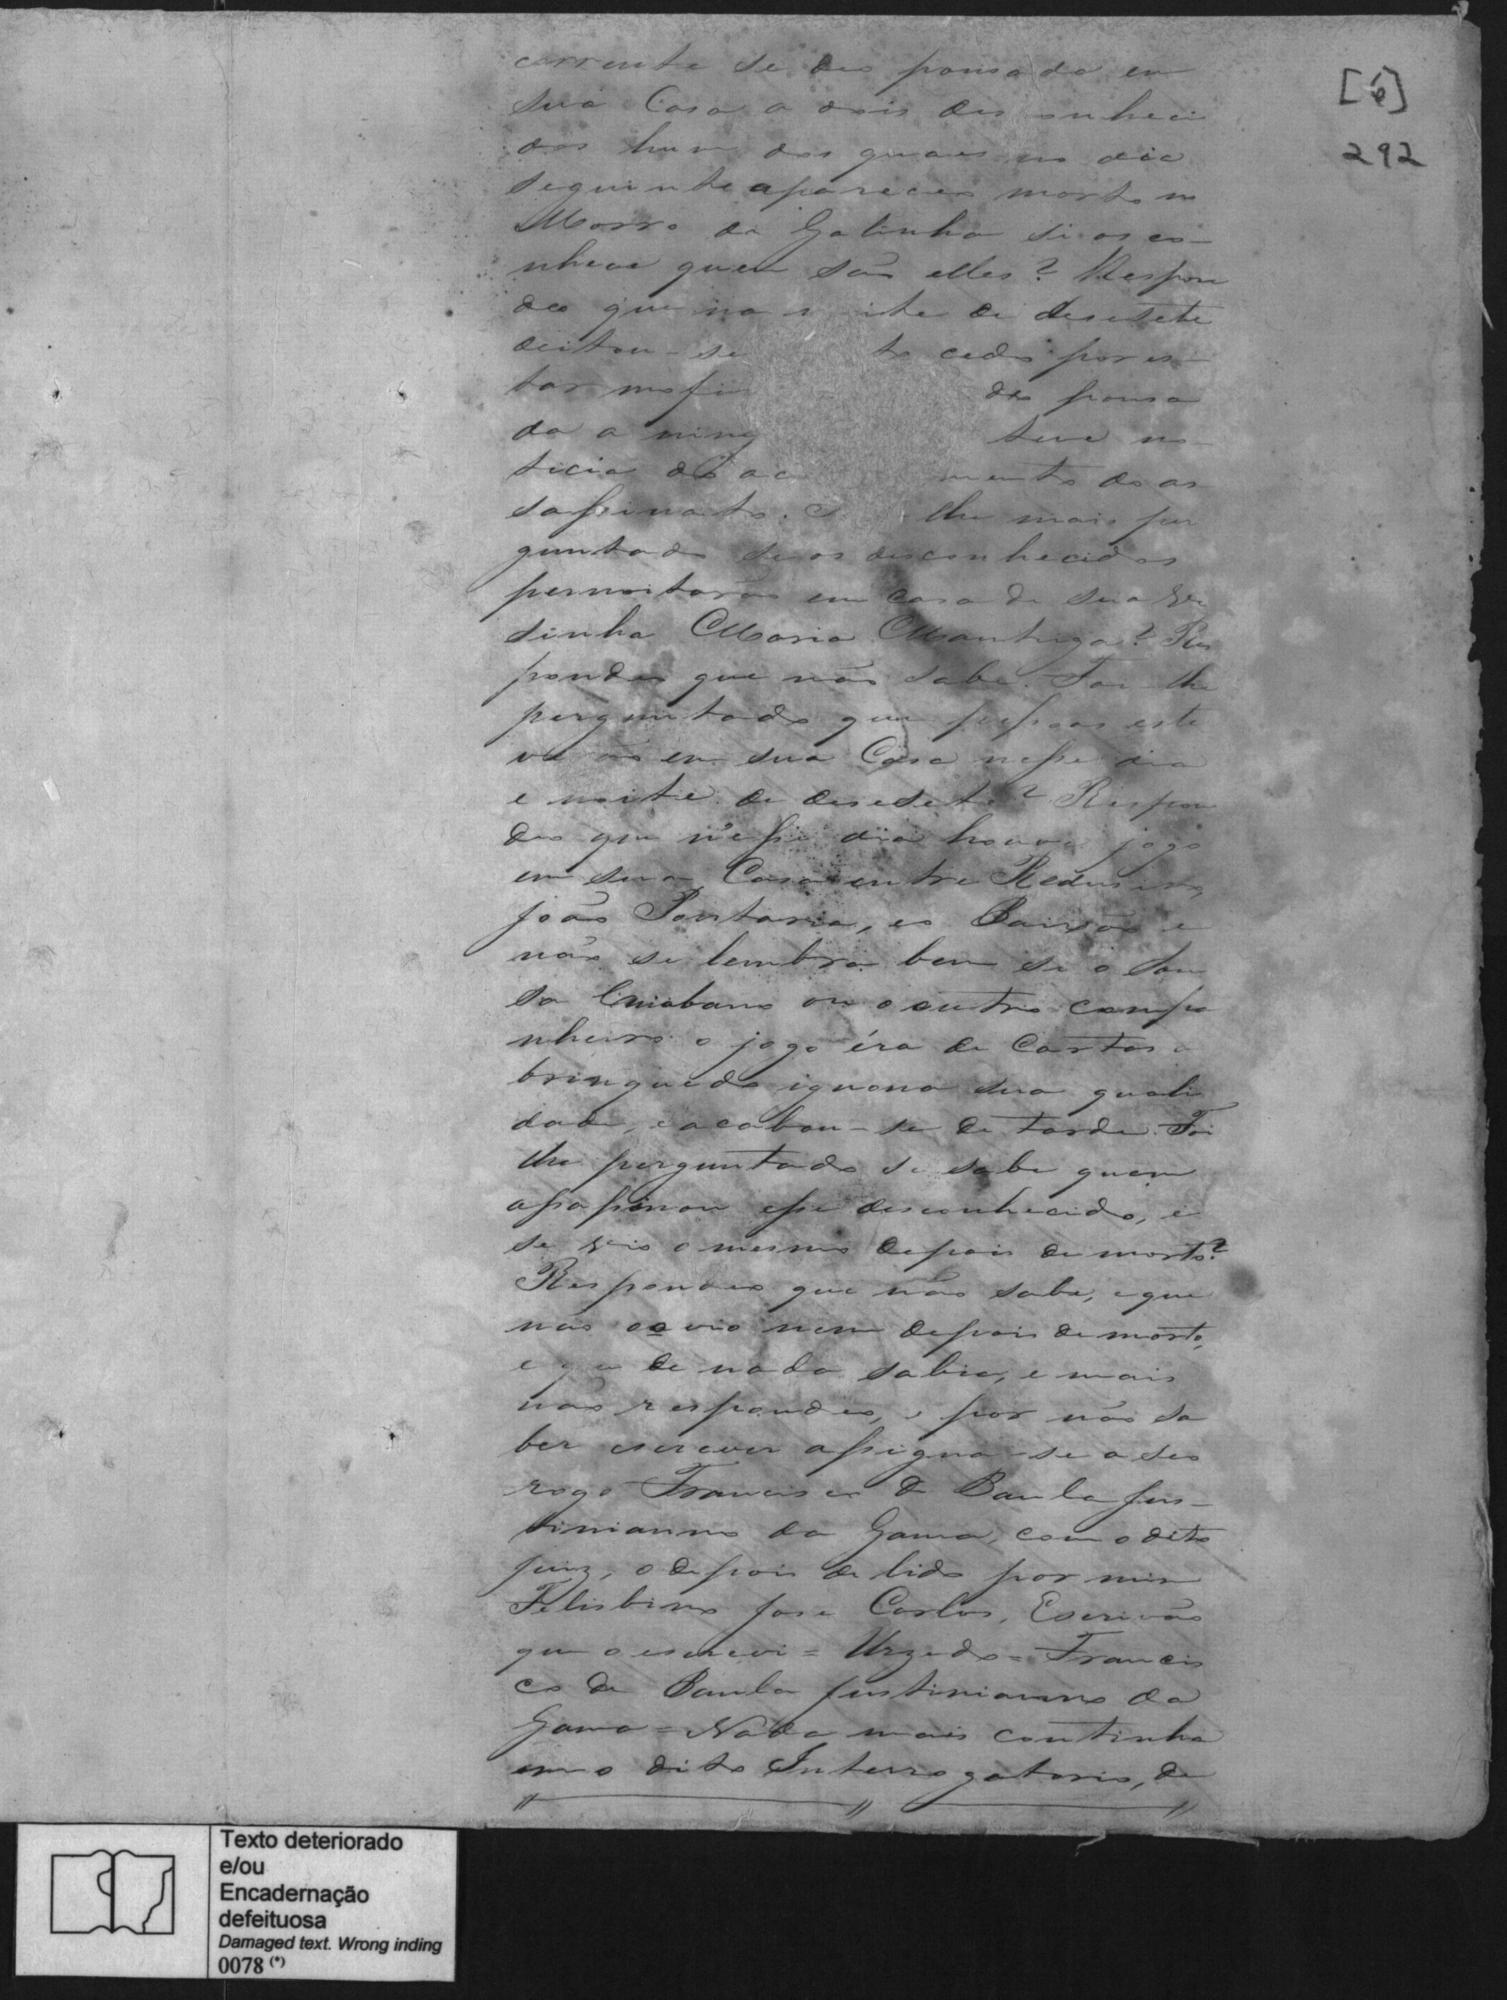 [6]
292
corrente se deo pousada em
sua Casa a dois desconheci
dos hum dos quaes no dia
seguinte apareceo morto no
Morro da Galinha si os co-
nhece quem são elles? Respon
deo que na n ite de desesete
deitou-se to cedo por es-
tar mofin deo pousa
da a ning teve no-
ticia do ac mento do as
sassinato. lhe mais per
guntado se os desconhecidos
pernoitarão em casa de sua vi
sinha Maria Mantega? Res
pondeo que não sabe. Foi lhe
perguntado que pessoas este
verão em sua Casa nesse dia
e noite de desesete? Respon
deo que n'esse dia houve jogo
em sua Casa entre Redusino,
João Pontaria, eo Baivão e
não se lembra bem se o Sou
sa Cuiabano ou o outro compa
nheiro o jogo éra de Cartas
brinquedo ignora sua quali
dade, e acabou-se de tarde. Foi
lhe perguntado se sabe quem
assassinou esse desconhecido, e
se vio o mesmo depois de morto?
Respondeo que não sabe, e que
não o vio nem depois de morto,
e que de nada sabia, e mais
não respondeo, e por não sa
ber escrever assigna-se a seo
rogo Francisco de Paula Jus-
tinianno da Gama, com o dito
Juiz, o depois de lido por mim
Felisbino Jose Carlos, Escrivão
que o escrevi = Urzedo = Francis
co de Paula Justinianno da
Gama = Nada mais continha
em o dito Interrogatorio, de
Texto deteriorado
e/ou
Encadernação
defeituosa
Damaged text. Wrong inding
0078 (*)